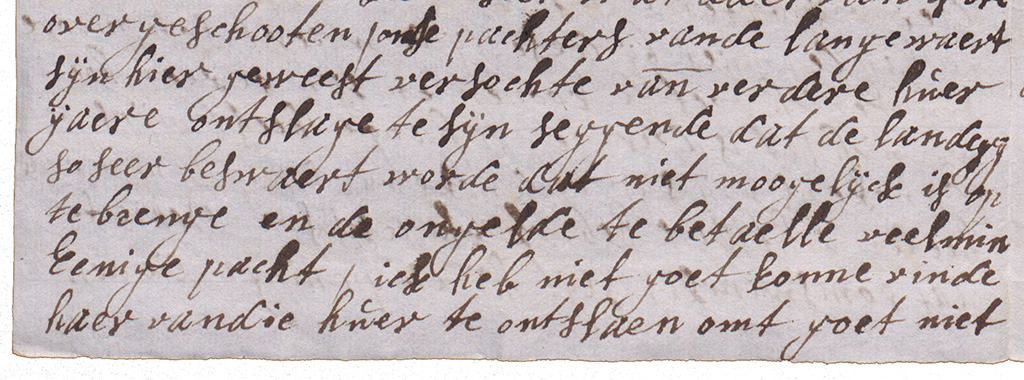 overgeschooten onse pachters vande langewaert
sijn hier geweest versochte van verdere huer
jaere ontslage te sijn seggende dat de landerij
so seer beswaert worde dat niet moogelijck is op
te brenge en de ongelde te betaelle veelmin
Eenige pacht, ick heb niet goet konne vinde
haer van die huer te ontslaen omt goet niet